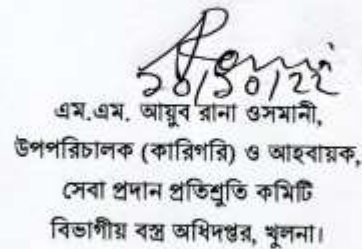 ১০/১০/২২
এম.এম. আয়ুব রানা ওসমানী,
উপপরিচালক (কারিগরি) ও আহবায়ক,
সেবা প্রদান প্রতিশ্রুতি কমিটি
বিভাগীয় বস্ত্র অধিদপ্তর, খুলনা।